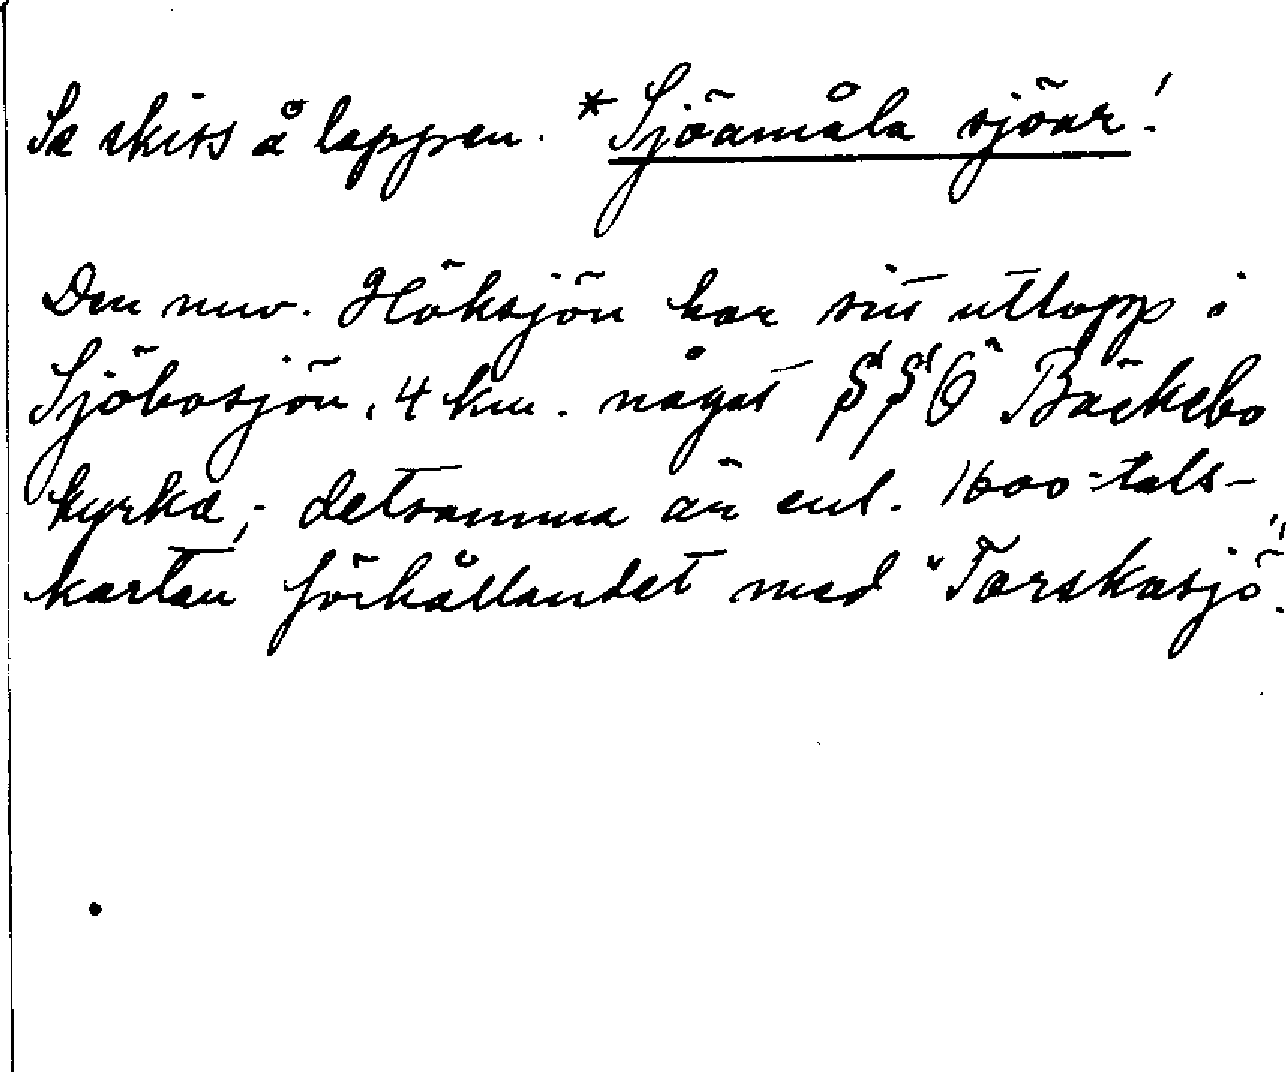 Se skiss å lappen *Sjöamåla sjöar!
Den nuv. Höksjön har sitt utlopp i
Sjöbosjön, 4 km. något SSÖ Bäckebo
kyrka; detsamma är enl. 1600-tals-
kartan förhållandet med "Torskasjö".